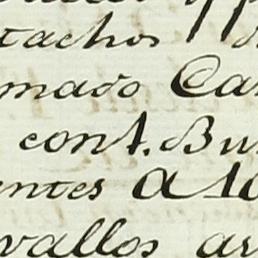 tachos
mado Car
cont. Bu
entes A 10
vallos ar